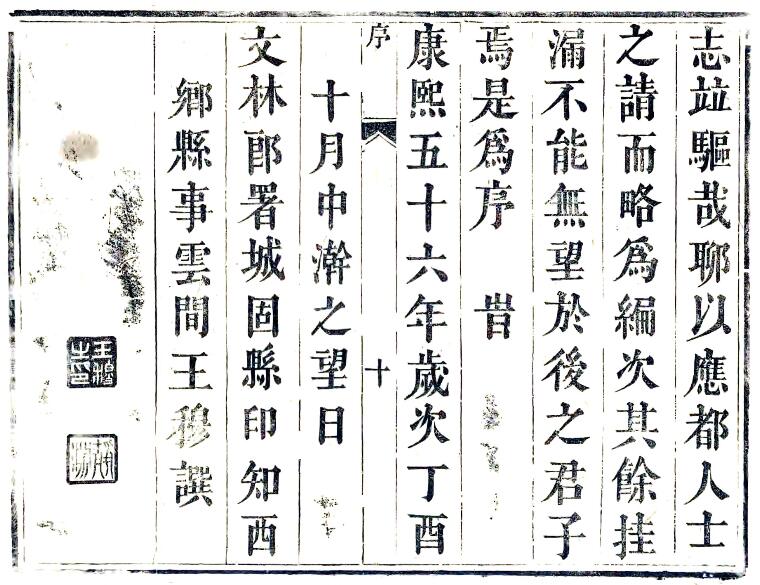 志竝驅哉聊以應都人士
之請而略爲編次其餘挂
漏不能無望於後之君子
焉是爲序　旹
康熙五十六年歲次丁酉
序　十
十月中澣之望日
文林郎署城固縣印知西
鄉縣事雲間王穆譔